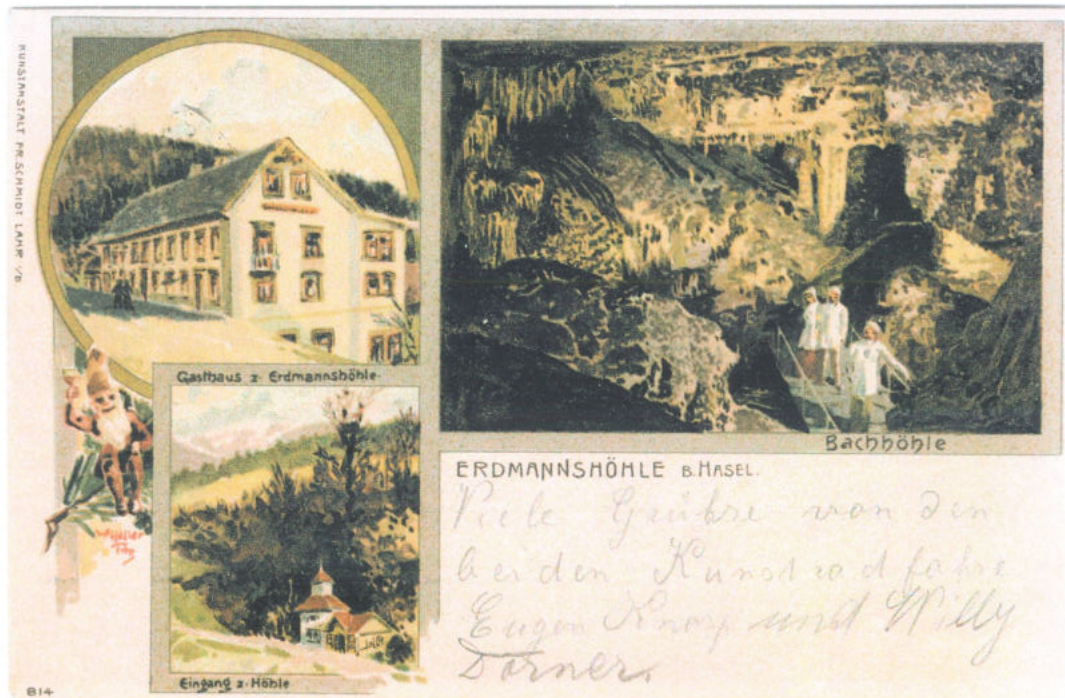 KUNSTANSTALT FR. SCHMIDT LAHR i/B
Gasthaus z. Erdmannshöhle.
Bachhöhle
ERDMANNSHÖHLE B. HASEL.
Viele Grühse von den
beiden Kunstradfahre
Eugen und Willy
Dorner
Eingang z. Höhle
814